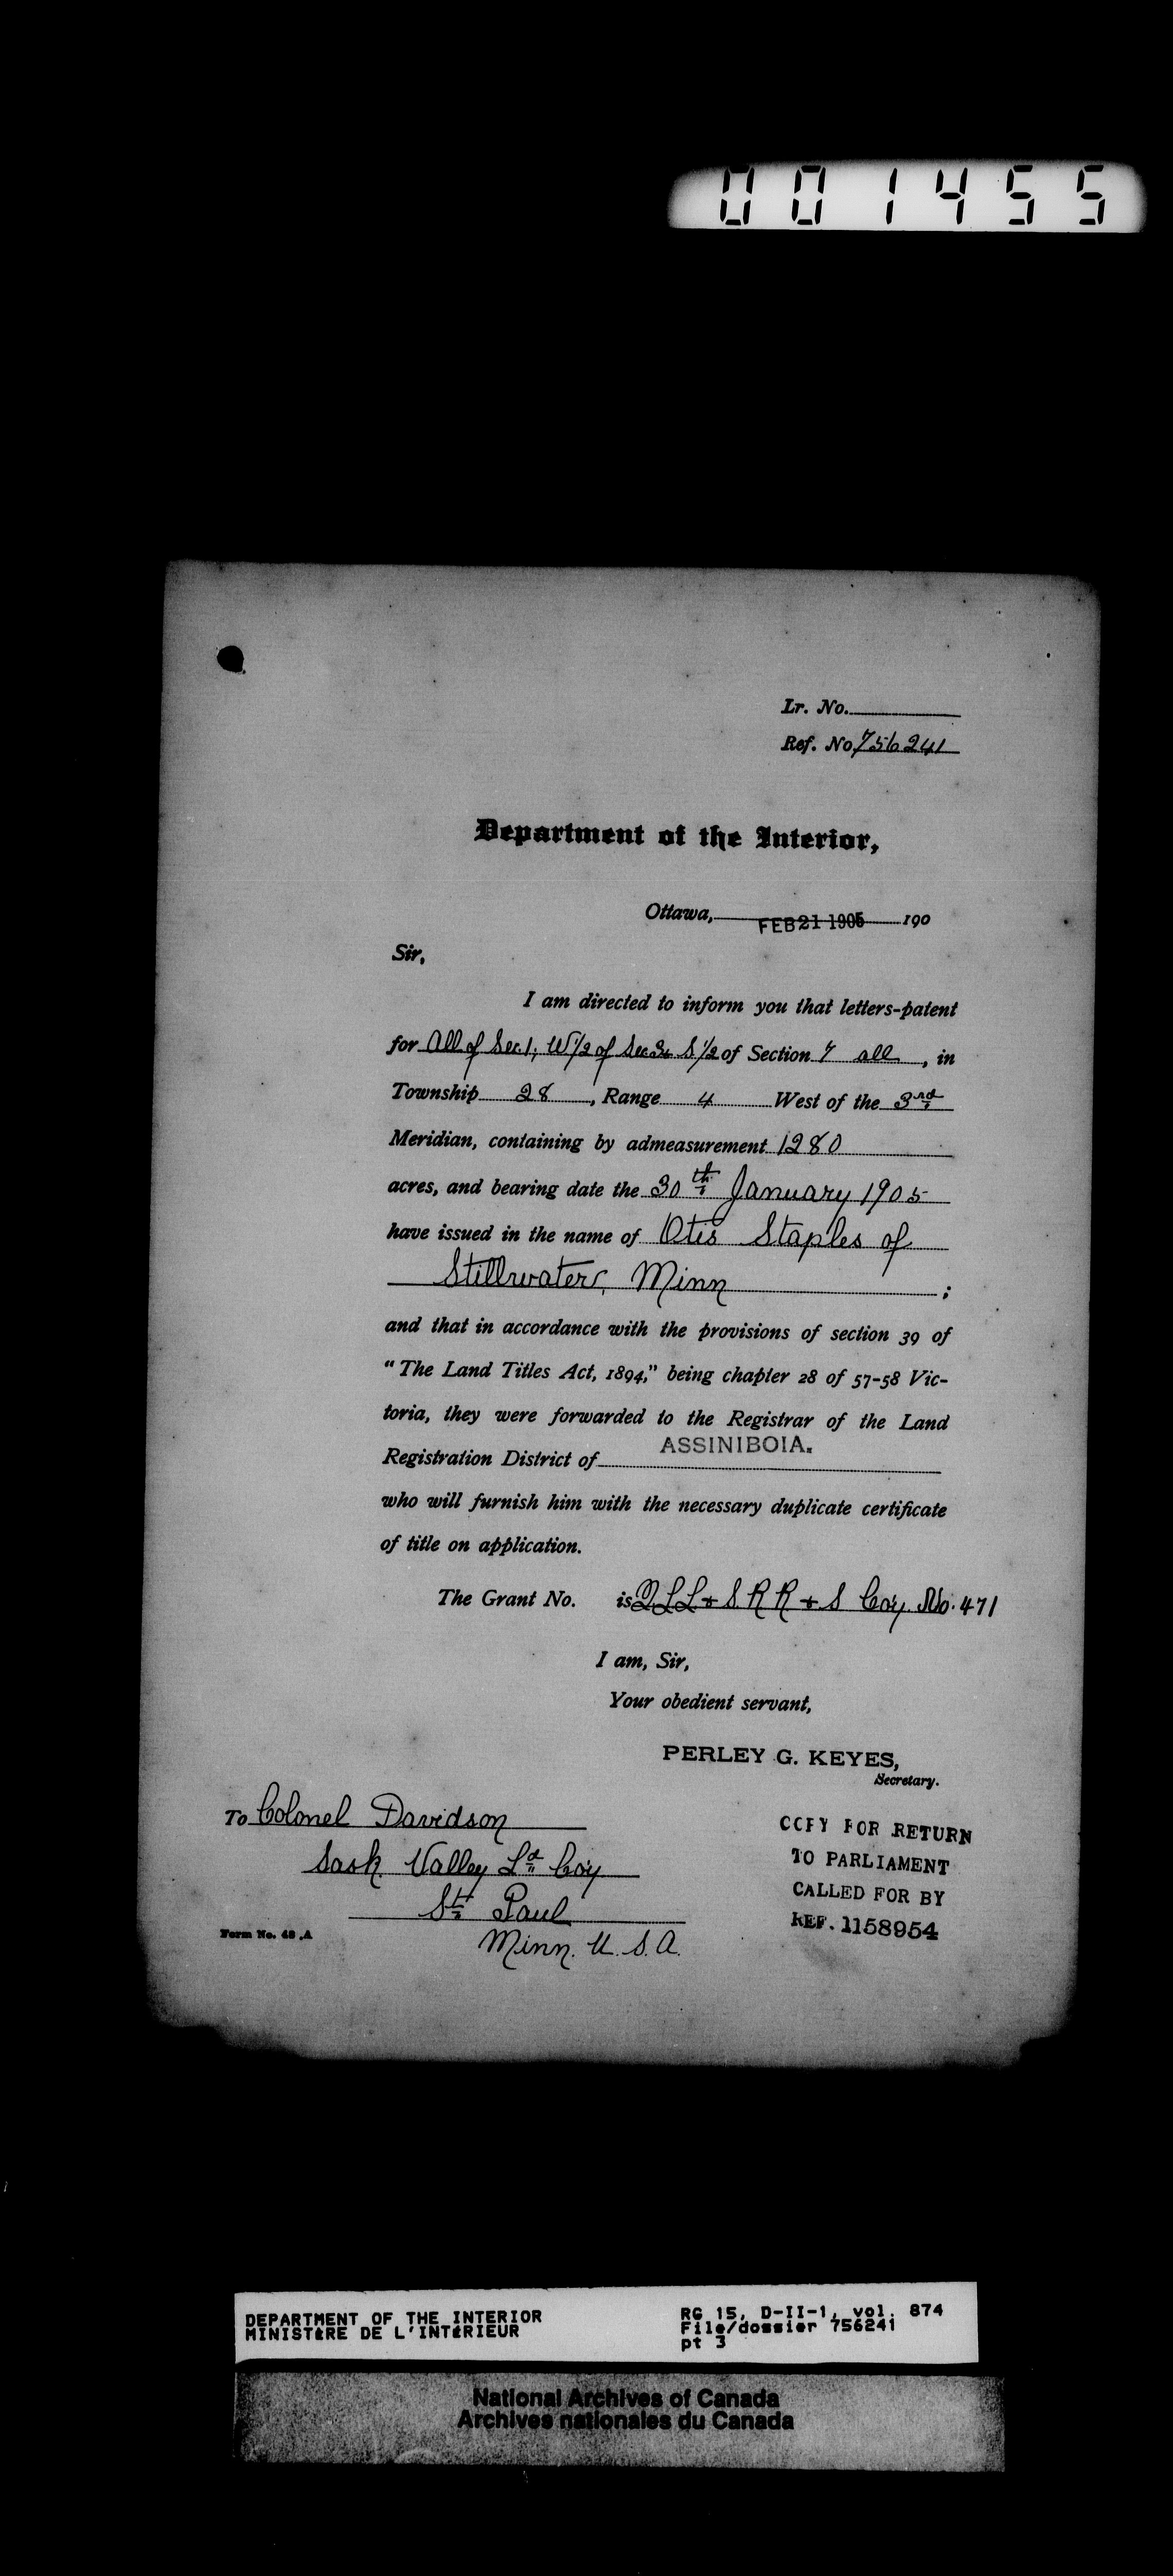 001455
Lr. No.
Ref. No. 756241
Department of the Interior,
Ottawa, FEB 21 1905 190
Sir,
I am directed to inform you that letters-patent
for All of Sec. 1, W 1/2 of Sec. S 1/2 of Section 7 all, in
Township 28, Range 4 West of the 3rd
Meridian, containing by admeasurement 1280
acres, and bearing date the 30th January 1905
have issued in the name of Otis Staples of
Stillwater, Minn ;
and that in accordance with the provisions of section 39 of
"The Land Titles Act, 1894," being chapter 28 of 57-58 Vic-
toria, they were forwarded to the Registrar of the Land
Registration District of ASSINIBOIA.
who will furnish him with the necessary duplicate certificate
of title on application.
The Grant No. is Q L L & S. R R & S Coy. No. 471
I am, Sir,
Your obedient servant,
PERLEY G. KEYES,
Secretary.
To Colonel Davidson
Sask. Valley Ld Coy
St. Paul
Minn. U. S. A.
COPY FOR RETURN
TO PARLIAMENT
CALLED FOR BY
REF. 1158954
Form No. 48 .A
DEPARTMENT OF THE INTERIOR
MINISTÈRE DE L'INTÉRIEUR
RG 15, D-II-1, vol. 874
File/dossier 756241
pt 3
National Archives of Canada
Archives nationales du Canada